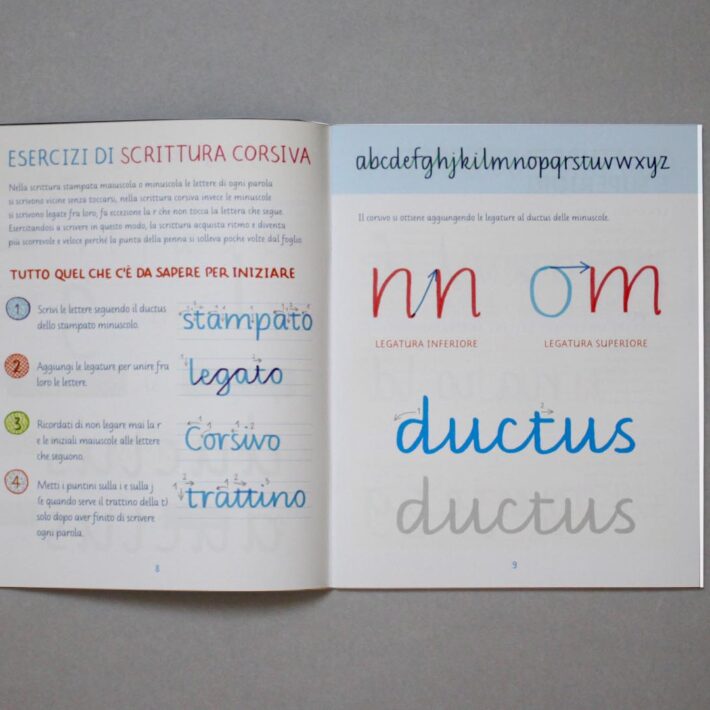 ESERCIZI DI SCRITTURA CORSIVA
Nella scrittura stampata maiuscola o minuscola le lettere di ogni parola
si scrivono vicine senza toccarsi, nella scrittura corsiva invece le minuscole
si scrivono legate fra loro, fa eccezione la r che non tocca la lettera che segue.
Esercitandosi a scrivere in questo modo, la scrittura acquista ritmo e diventa
più scorrevole e veloce perché la punta della penna si solleva poche volte dal foglio
TUTTO QUEL CHE C'È DA SAPERE PER INIZIARE
1
Scrivi le lettere seguendo il ductus
dello stampato minuscolo.
stampato
2
Aggiungi le legature per unire fra
loro le lettere.
legato
3
Ricordati di non legare mai la r
e le iniziali maiuscole alle lettere
che seguono.
Corsivo
4
Metti i puntini sulla i e sulla j
(e quando serve il trattino della t)
solo dopo aver finito di scrivere
ogni parola.
trattino
8
abcdefghjkilmnopqrstuvwxyz
Il corsivo si ottiene aggiungendo le legature al ductus delle minuscole.
nn
LEGATURA INFERIORE
om
LEGATURA SUPERIORE
ductus
ductus
9